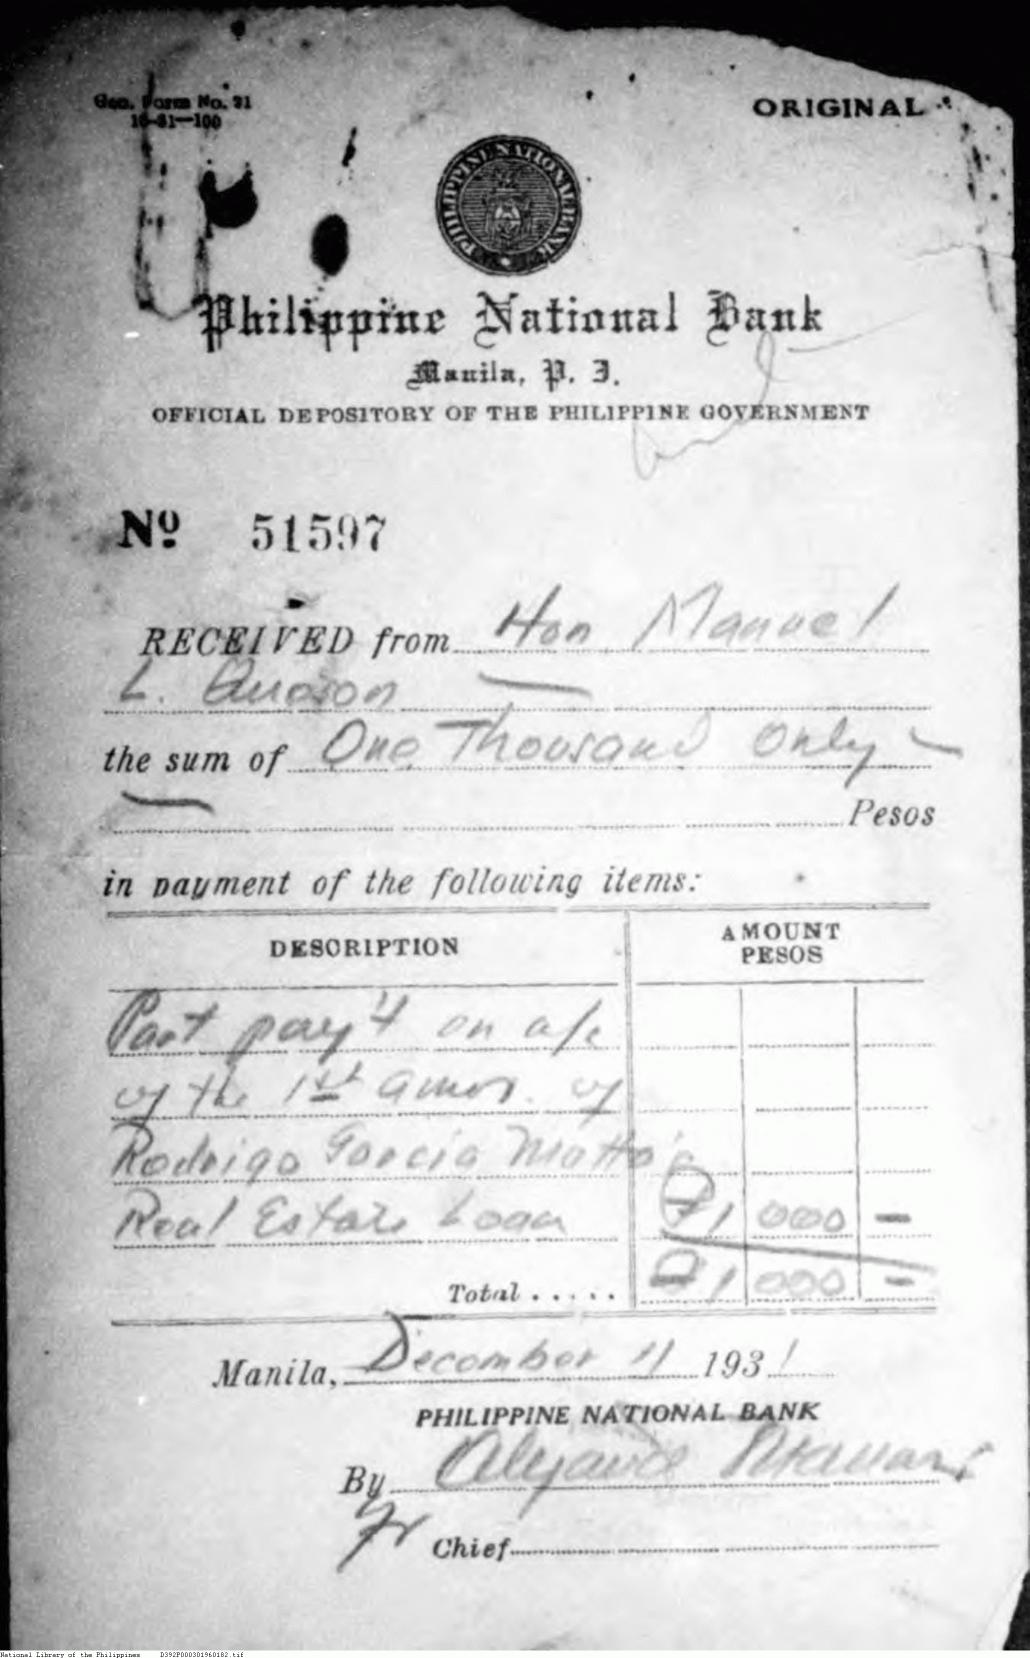 Gen. Form No. 21
10-31—100
ORIGINAL
PHILIPPINE NATIONAL BANK
Philippine National Bank
Manila, P. I.
OFFICIAL DEPOSITORY OF THE PHILIPPINE GOVERNMENT
No 51597
RECEIVED from Hon Manuel
L. Quezon
the sum of One Thousand Only
Pesos
in payment of the following items:
DESCRIPTION AMOUNT
PESOS
Part pay't on a/c
of the 1st amor. of
Rodrigo Garcia
Real Estate Loan ₱1 000 -
Total ..... ₱1 000 -
Manila, December 11 1931
PHILIPPINE NATIONAL BANK
By
Chief
National Library of the Philippines D392P000301960182.tif